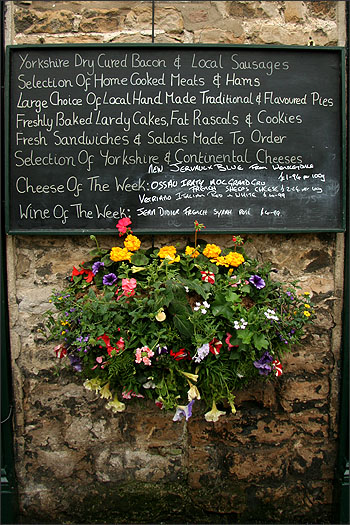 Yorkshire Dry Cured Bacon & Local Sausages
Selection Of Home Cooked Meats & Hams
Large Choice Of Local Hand Made Traditional & Flavoured Pies
Freshly Baked Lardy Cakes, Fat Rascals & Cookies
Fresh Sandwiches & Salads Made To Order
Selection Of Yorkshire & Continental Cheeses
NEW JERVAULX BLUE FROM WENSLEYDALE
£1-96 per 100g
Cheese Of The Week: OSSAU IRATY
FRENCH SHEEPS CHEESE
ITALIAN WHITE
Wine Of The Week: JEAN DIDIER FRENCH SYRAH ROSÉ